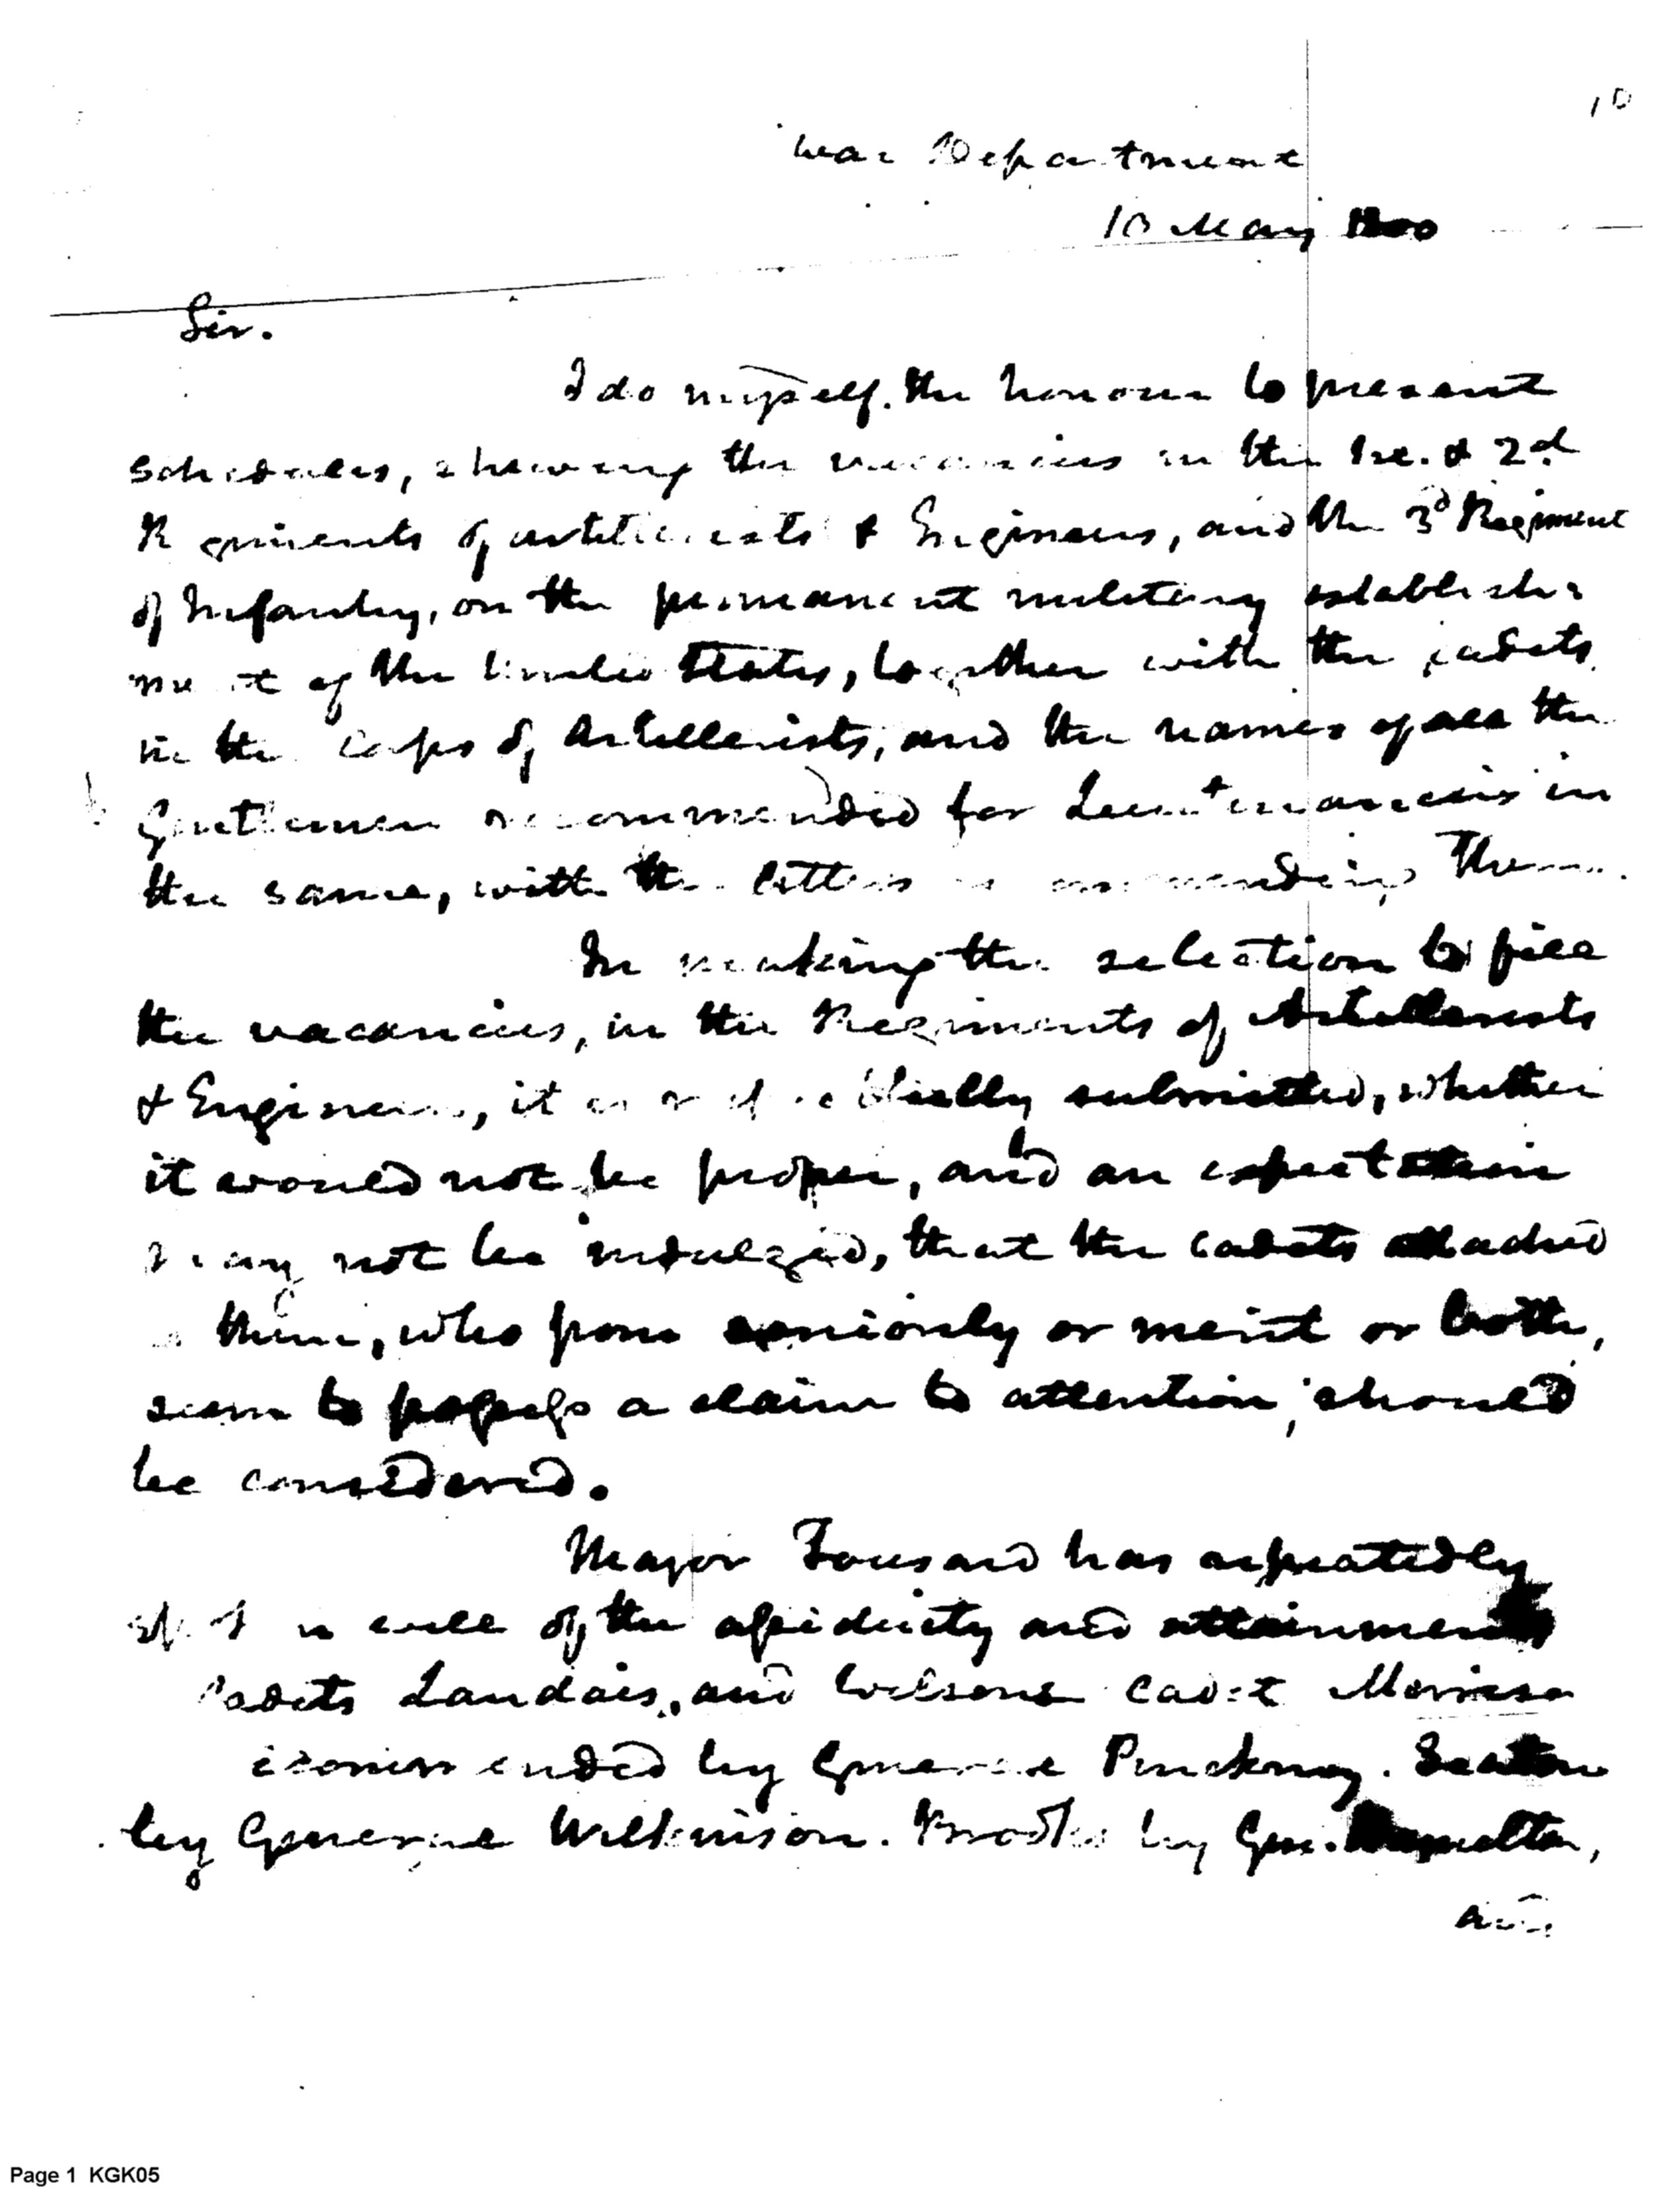 10
War Department
10 May 1800
Sir.
I do myself the honour to present
schedules, shewing the vacancies in the 1st. & 2d
Regiments of Artillerists & Engineers, and the 3d Regiment
of Infantry, on the permanent military establish-
ment of the United States, together with the cadets
in the Corps of Artillerists, and the names of all the
Gentlemen recommended for Lieutenancies in
the same, with the letters recommending them.
In making the selection to fill
the vacancies, in the Regiments of Artillerists
& Engineers, it is respectfully submitted, whether
it would not be proper, and an expectation
may not be indulged, that the cadets attached
to them, who from seniority or merit or both,
seem to possess a claim to attention, should
be considered.
Major Tousard has repeatedly
spoken well of the assiduity and attainments
Cadets Landais, and Wilson Cadet Morrison
recommended by General Pinckney.
by General Wilkinson. Brooks by Gen. Hamilton,
and
Page 1 KGK05